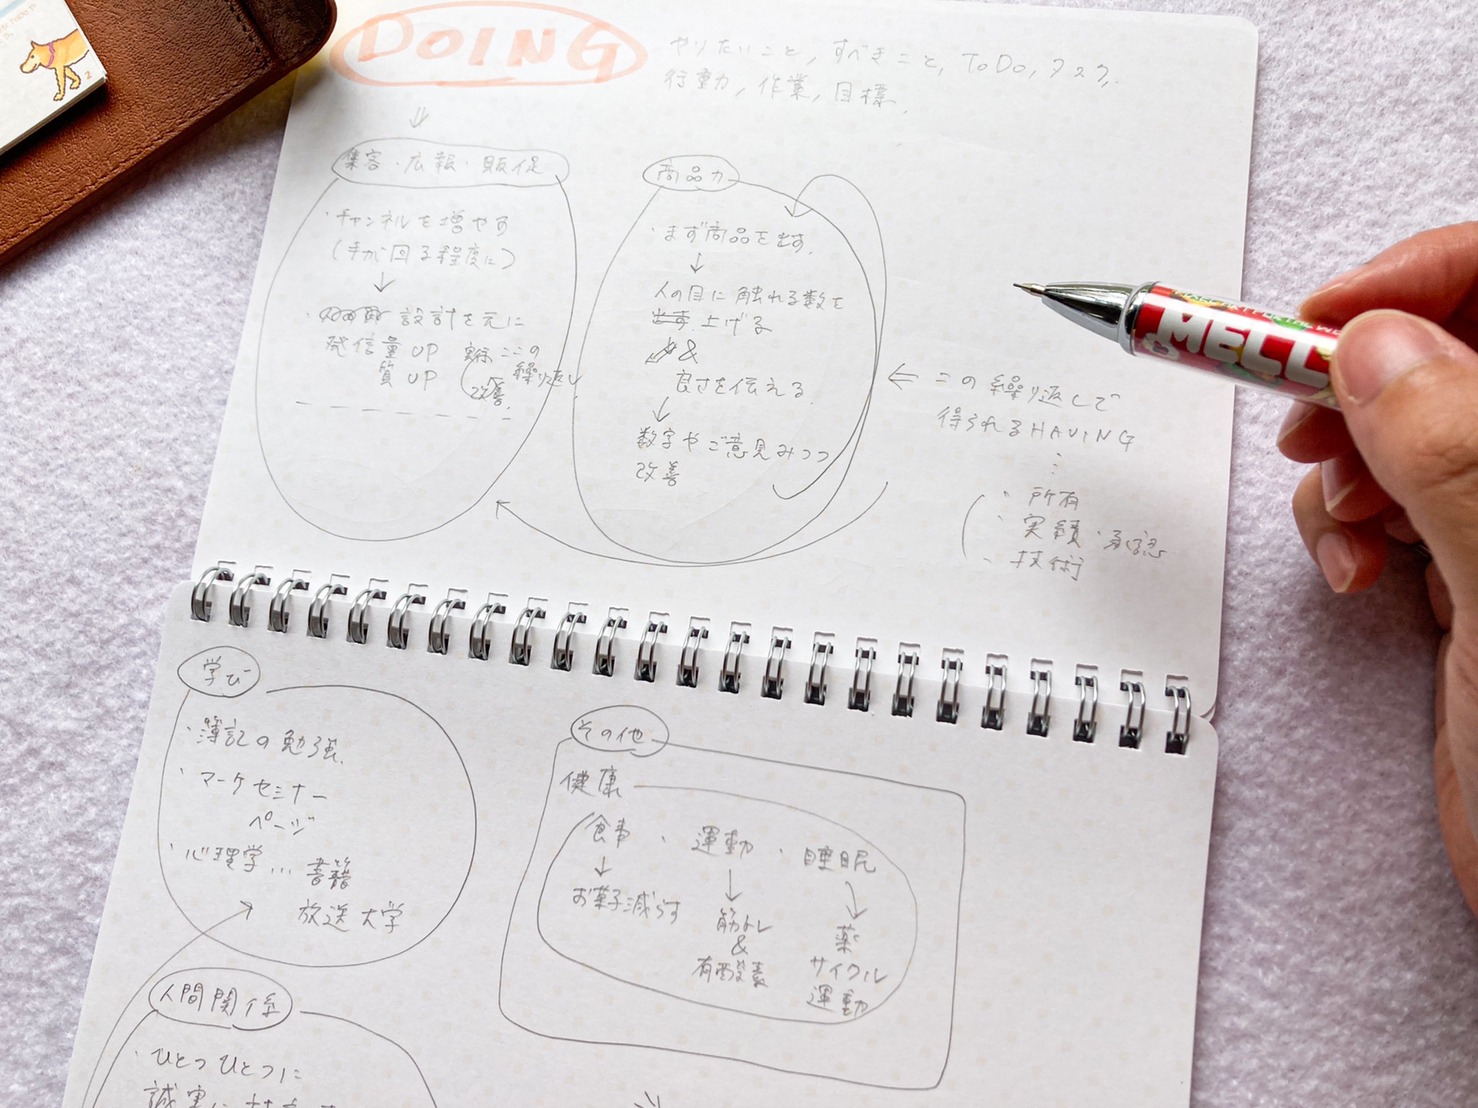 DOING
やりたいこと, すべきこと, ToDo, タスク,
行動, 作業, 目標,
集客・広報・販促
・チャンネルを増やす
(手が回る程度に)
・設計を元に
発信量UP
質UP
ここの
繰り返し
改善
商品力
・まず商品を出す.
人の目に触れる数を
出す 上げる
&
良さを伝える
数字やご意見みつつ
改善
この繰り返しで
得られるHAVING
・所有
・実績・承認
・技術
MELL
2
学び
・簿記の勉強
・マーケセミナー
ページ
・心理学... 書籍
放送大学
その他
健康
食事・運動・睡眠
お菓子減らす
筋トレ
&
有酸素
薬
サイクル
運動
人間関係
・ひとつひとつに
誠実に